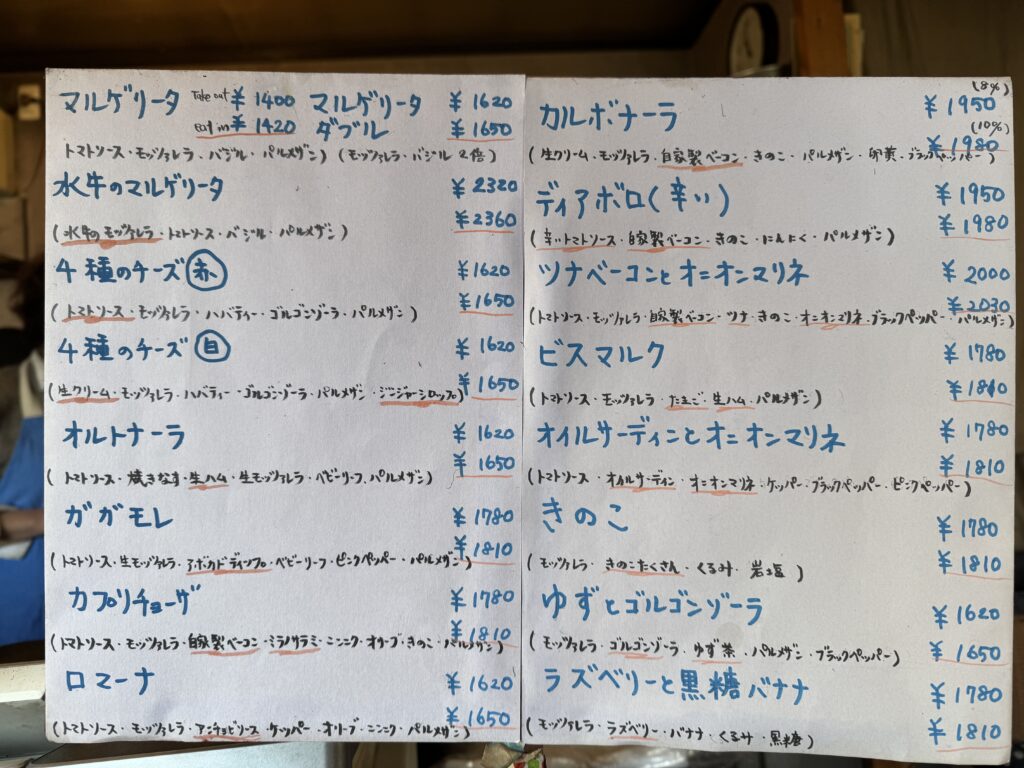 マルゲリータ Take out ¥1400 マルゲリータ ¥1620
Eat in ¥1420 ダブル ¥1650
トマトソース・モッツァレラ・バジル・パルメザン) (モッツァレラ・バジル2倍)
水牛のマルゲリータ ¥2320
¥2360
(水牛のモッツァレラ・トマトソース・バジル・パルメザン)
4種のチーズ 赤 ¥1620
¥1650
(トマトソース・モッツァレラ・ハバティー・ゴルゴンゾーラ・パルメザン)
4種のチーズ 白 ¥1620
¥1650
(生クリーム・モッツァレラ・ハバティー・ゴルゴンゾーラ・パルメザン・ジンジャーシロップ)
オルトナーラ ¥1620
¥1650
(トマトソース・焼きなす・生ハム・生モッツァレラ・ベビーリーフ・パルメザン)
ガガモレ ¥1780
¥1810
(トマトソース・生モッツァレラ・アボカドディップ・ベビーリーフ・ピンクペッパー・パルメザン)
カプリチョーザ ¥1780
¥1810
(トマトソース・モッツァレラ・自家製ベーコン・ミラノサラミ・ニンニク・オリーブ・きのこ・パルメザン)
ロマーナ ¥1620
¥1650
(トマトソース・モッツァレラ・アンチョビソース・ケッパー・オリーブ・ニンニク・パルメザン)
(8%)
カルボナーラ ¥1950
(10%)
¥1980
(生クリーム・モッツァレラ・自家製ベーコン・きのこ・パルメザン・卵黄・ブラックペッパー)
ディアボロ(辛い) ¥1950
¥1980
(辛いトマトソース・自家製ベーコン・きのこ・にんにく・パルメザン)
ツナベーコンとオニオンマリネ ¥2000
¥2030
(トマトソース・モッツァレラ・自家製ベーコン・ツナ・きのこ・オニオンマリネ・ブラックペッパー・パルメザン)
ビスマルク ¥1780
¥1810
(トマトソース・モッツァレラ・たまご・生ハム・パルメザン)
オイルサーディンとオニオンマリネ ¥1780
¥1810
(トマトソース・オイルサーディン・オニオンマリネ・ケッパー・ブラックペッパー・ピンクペッパー)
きのこ ¥1780
¥1810
(モッツァレラ・きのこたくさん・くるみ・岩塩)
ゆずとゴルゴンゾーラ ¥1620
¥1650
(モッツァレラ・ゴルゴンゾーラ・ゆず茶・パルメザン・ブラックペッパー)
ラズベリーと黒糖バナナ ¥1780
¥1810
(モッツァレラ・ラズベリー・バナナ・くるみ・黒糖)